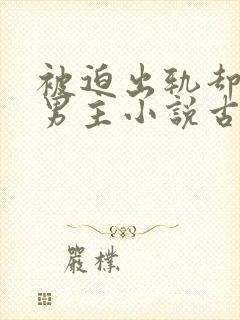 被迫出轨却
男主小說古
嚴樸